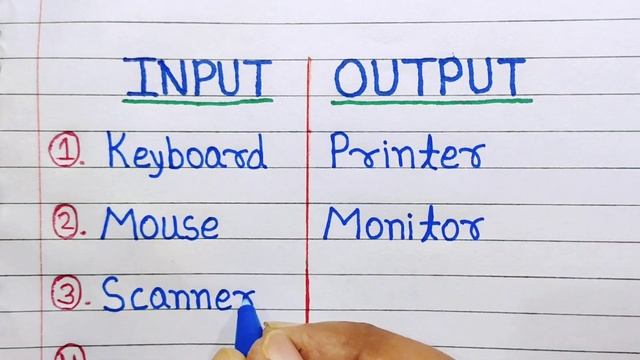 INPUT OUTPUT
1. Keyboard Printer
2. Mouse Monitor
3. Scanner